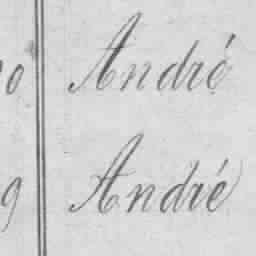 0 André
9 André